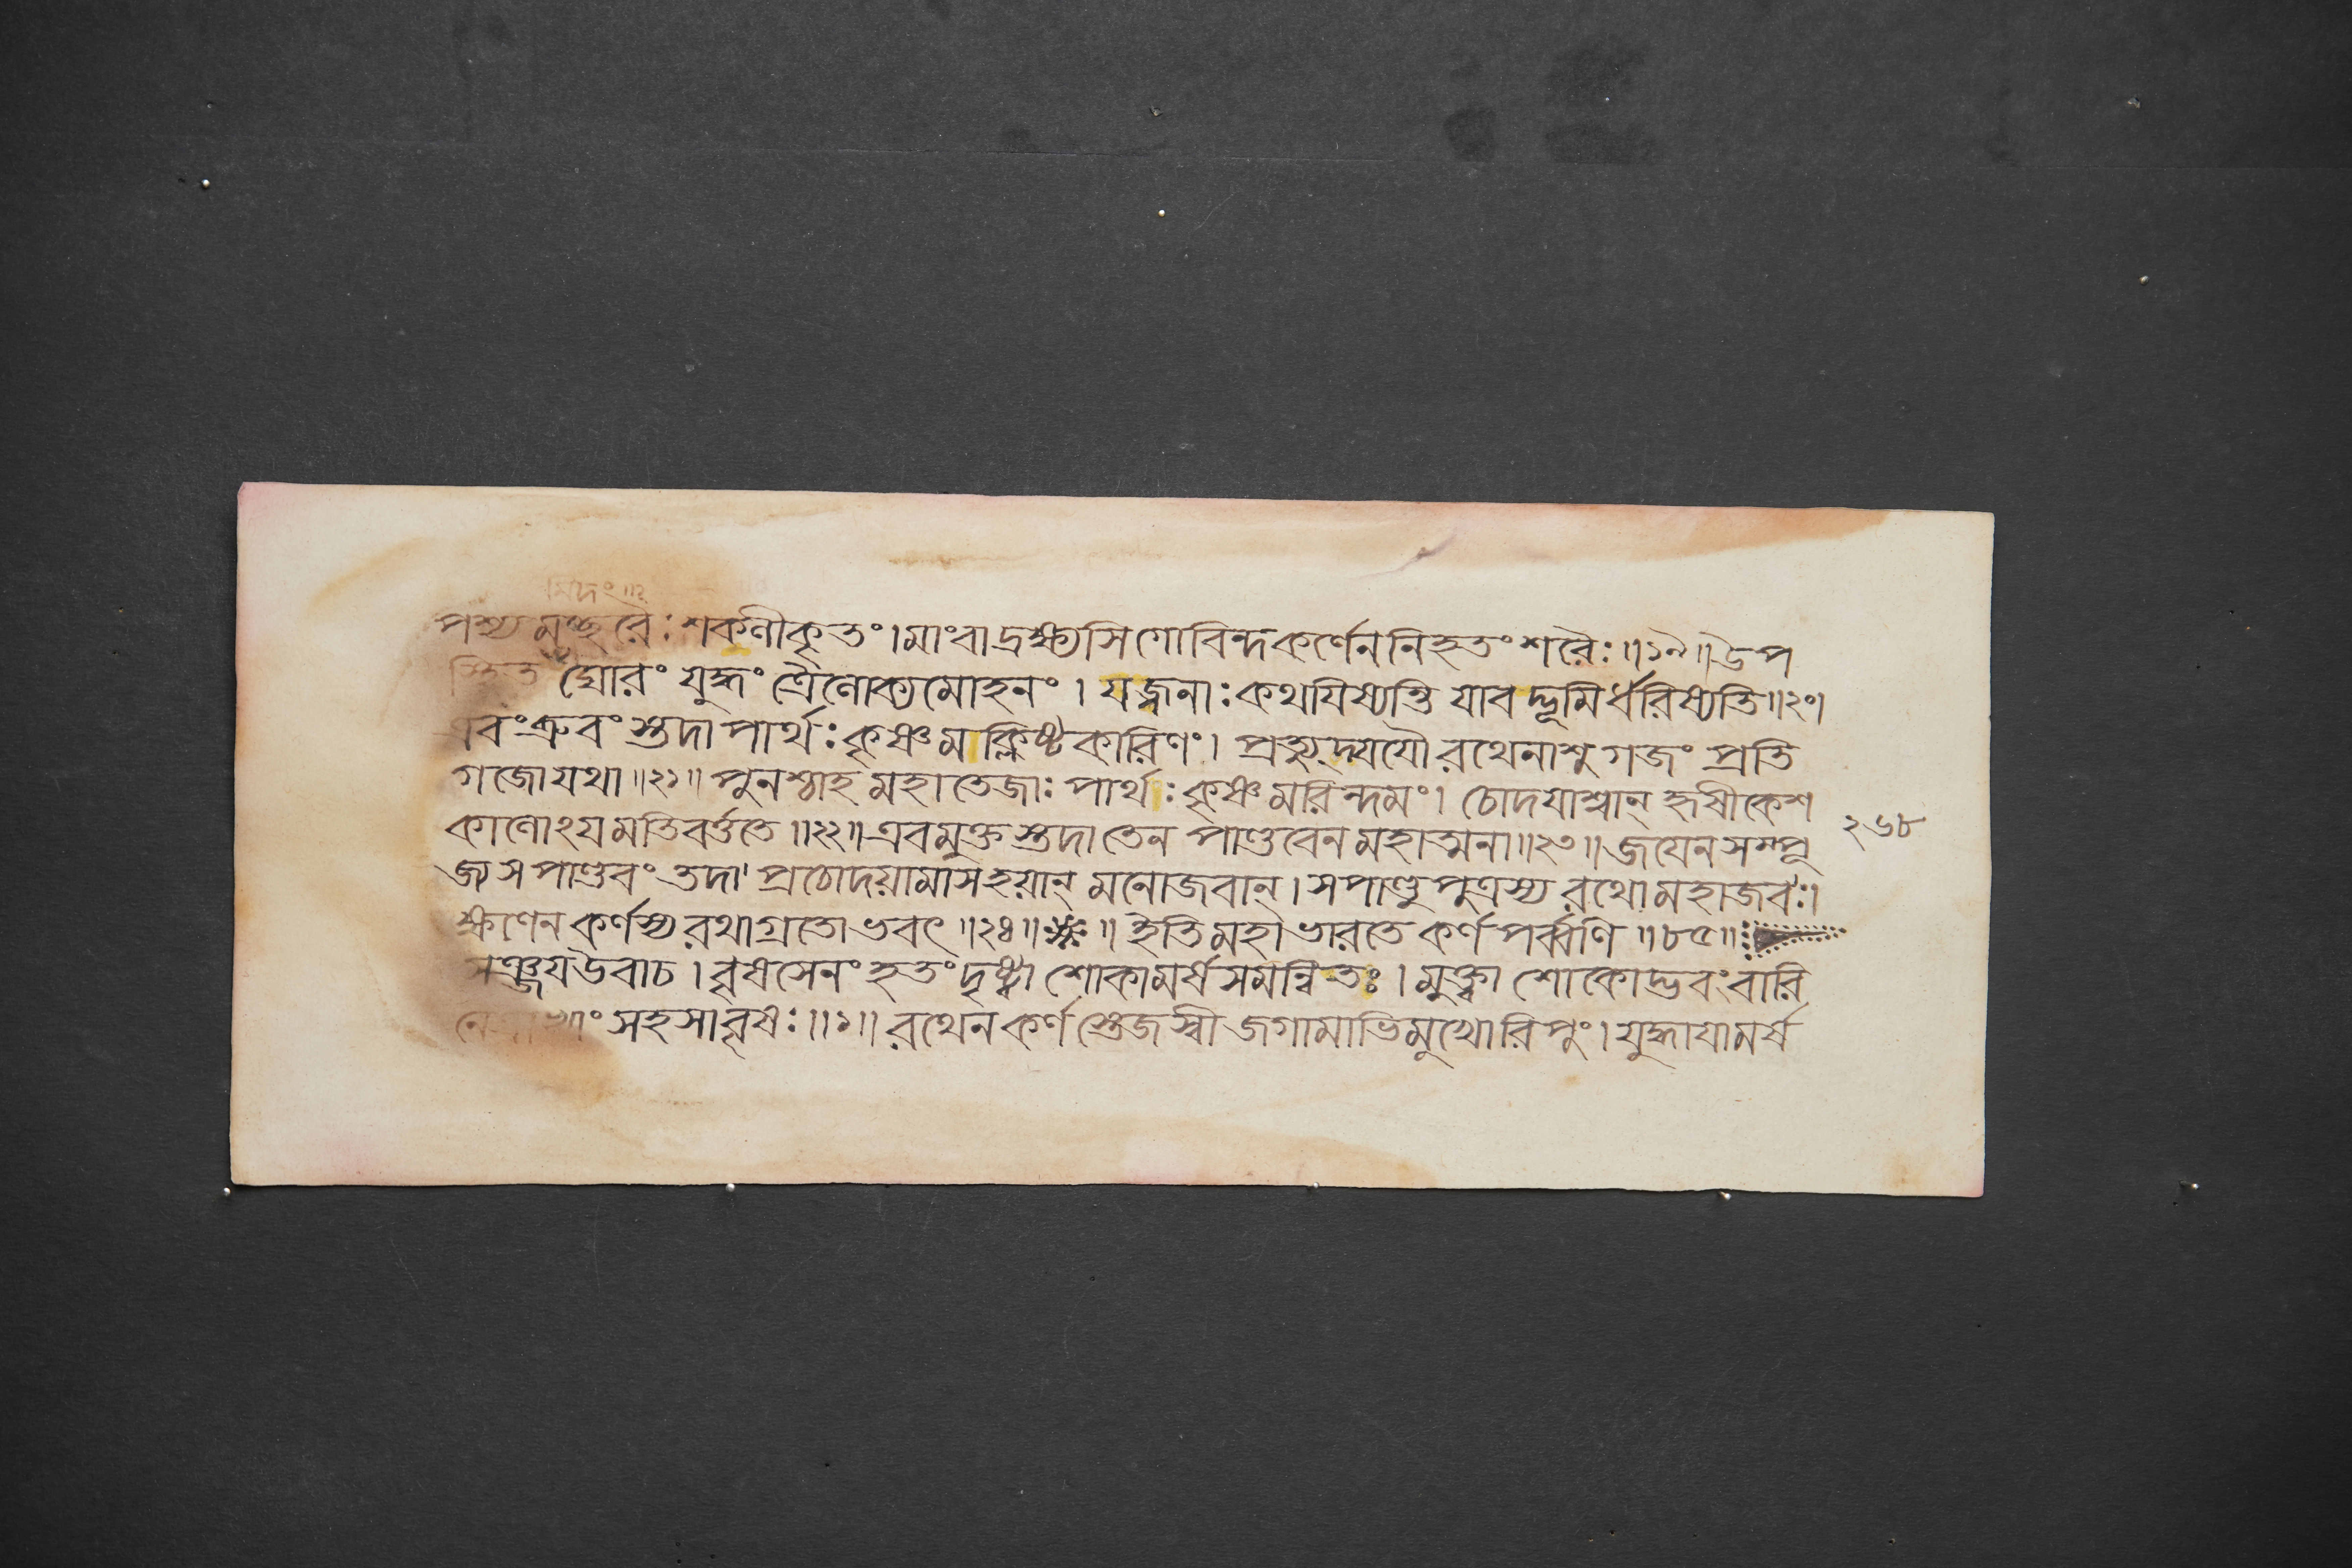 মিদং॥২
পশ্য মচ্ছরৈঃ শকলীকৃতং । মাং বা দ্রক্ষ্যসি গোবিন্দ কর্ণেন নিহতং শরৈঃ ॥১৯॥ উপ
স্থিত ঘোরং যুদ্ধং ত্রৈলোক্যমোহনং । যজ্জনাঃ কথযিষ্যন্তি যাবদ্ভূমির্ধরিষ্যতি ॥২০।
এবং ব্রুবং স্তদা পার্থঃ কৃষ্ণমক্লিষ্টকারিণং । প্রত্যুদ্যযৌ রথেনাশু গজং প্রতি
গজো যথা ॥২১॥ পুনশ্চাহ মহাতেজাঃ পার্থঃ কৃষ্ণমরিন্দমং । চোদযাশ্বান্ হৃষীকেশ
কালোঽযমতিবর্ত্ততে ॥২২॥ এবমুক্তস্তদা তেন পাণ্ডবেন মহাত্মনা ॥২৩॥ জযেন সম্পূ
জ্য স পাণ্ডবং তদা প্রচোদয়ামাস হয়ান্ মনোজবান্ । স পাণ্ডুপুত্রস্য রথো মহাজবঃ ।
ক্ষণেন কর্ণস্য রথাগ্রতোভবৎ ॥২৪॥ ❋ ॥ ইতি মহাভারতে কর্ণপর্ব্বণি ॥৮৫॥
সঞ্জয উবাচ । বৃষসেনং হতং দৃষ্ট্বা শোকামর্ষসমন্বিতঃ । মুক্ত্বা শোকোদ্ভবং বারি
সহসা বৃষঃ ॥১॥ রথেন কর্ণস্তেজস্বী জগামাভিমুখো রিপুং । যুদ্ধাযামর্ষ
২৬৮